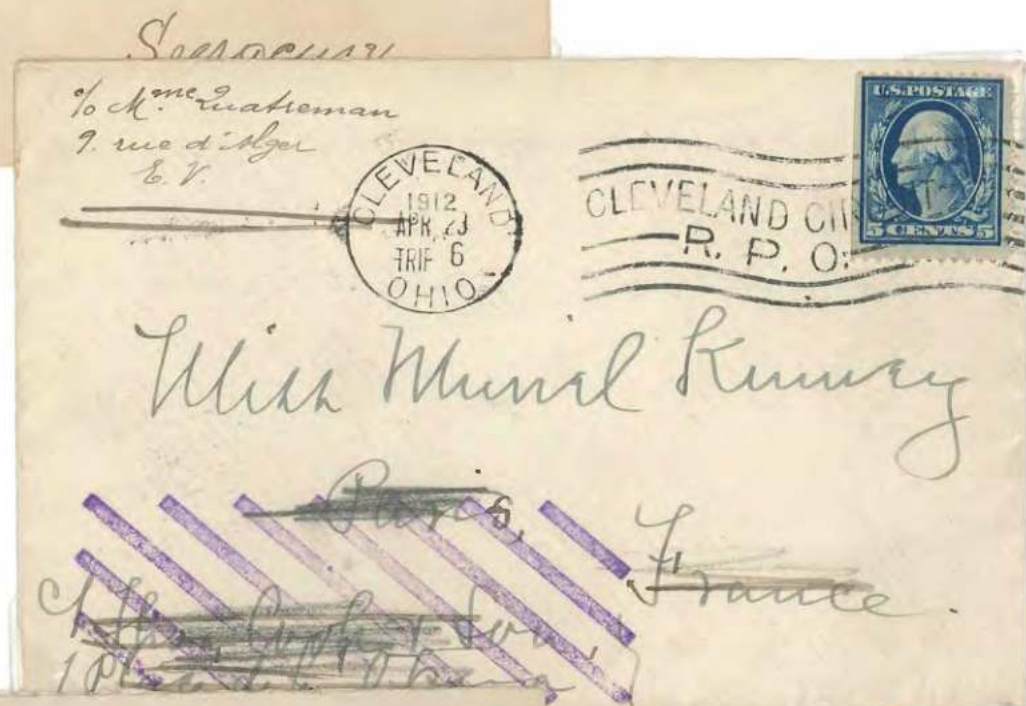 c/o Mme Quatreman
9. rue d'Alger
E. V.
CLEVELAND
1912
APR 23
TRIP 6
OHIO
CLEVELAND CIN
R. P. O.
U.S. POSTAGE
5 CENTS 5
Miss Muriel
Paris,
France
& Son,
1 Place de l'Opera